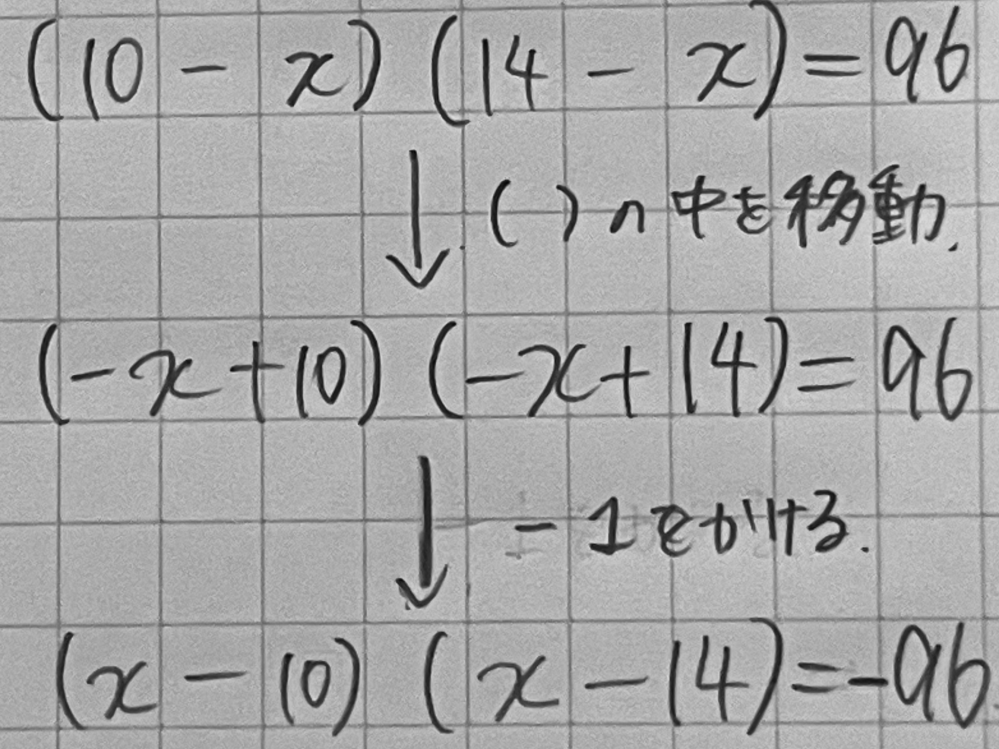 (10 - x) (14 - x) = 96
↓ ( ) の中を移動.
(-x + 10) (-x + 14) = 96
↓ -1をかける.
(x - 10) (x - 14) = -96